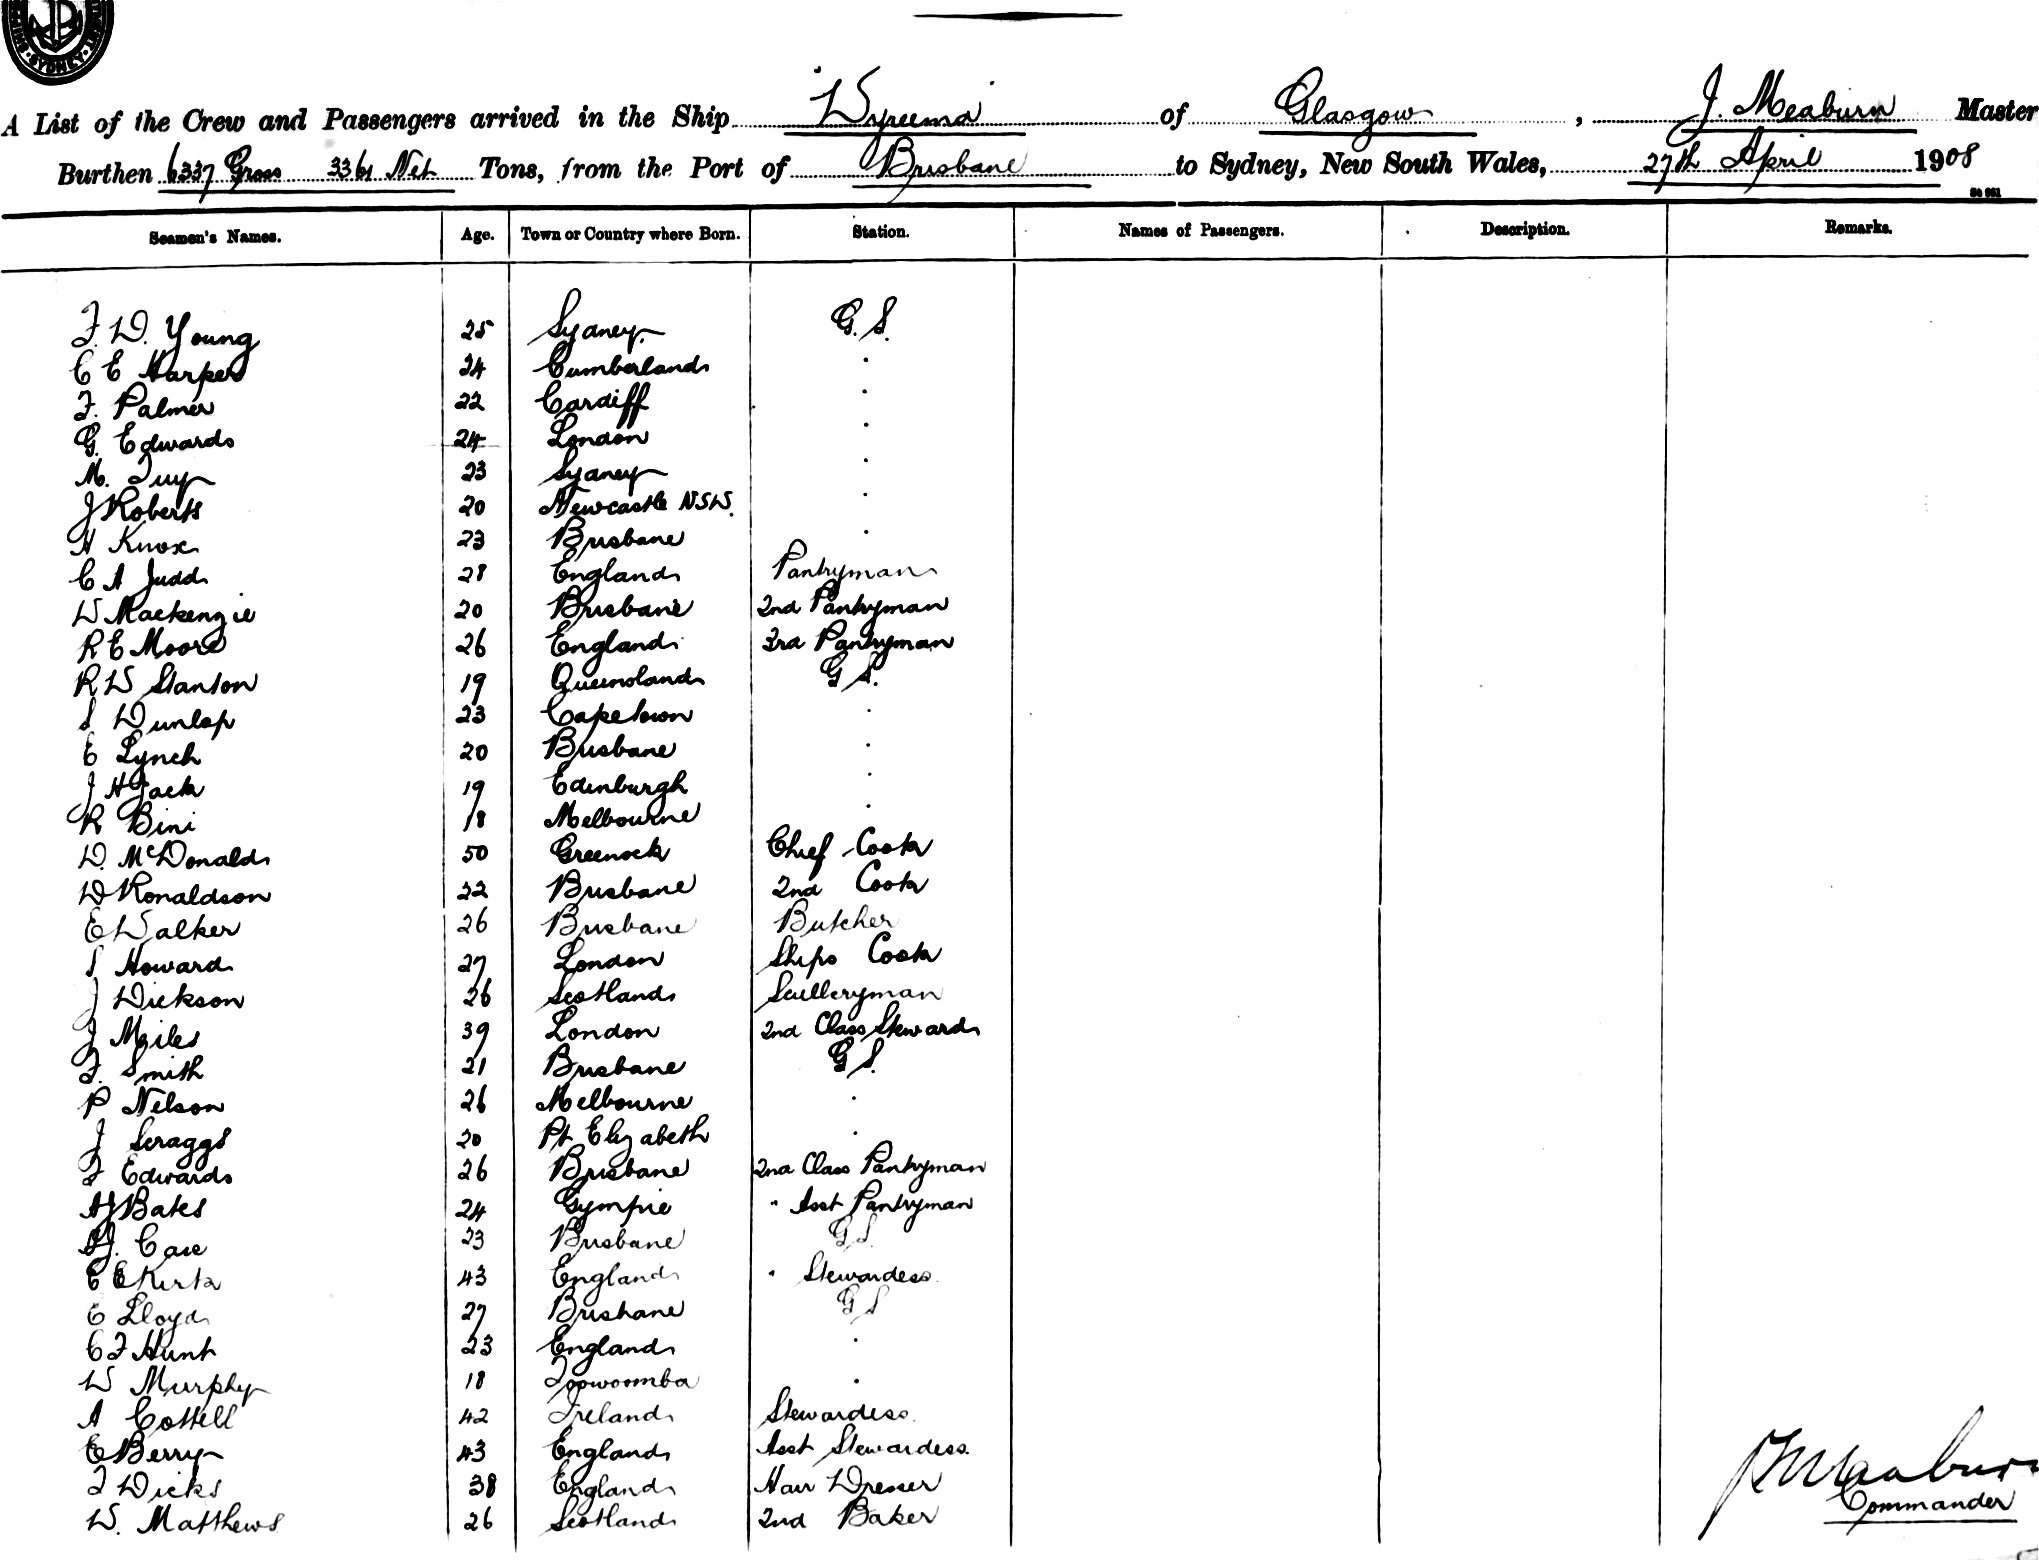 SYDNEY
A List of the Crew and Passengers arrived in the Ship Wyreema of Glasgow, J. Meaburn Master
Burthen 6337 Gross 3361 Net Tons, from the Port of Brisbane to Sydney, New South Wales, 27th April 1908
Seamen's Names. Age. Town or Country where Born. Station. Names of Passengers. Description. Remarks.
F. W. Young 25 Sydney. G. S.
C E Harper 24 Cumberland "
F. Palmer 22 Cardiff "
G. Edwards 24 London "
M. 23 Sydney "
J Roberts 20 Newcastle NSW. "
H Knox 23 Brisbane "
C A Judd 28 England Pantryman
W Mackenzie 20 Brisbane 2nd Pantryman
R E Moore 26 England 3rd Pantryman
R W Stanton 19 Queensland G S.
S Dunlop 23 Capetown "
E Lynch 20 Brisbane "
J H Jack 19 Edinburgh "
R Bini 18 Melbourne "
D. McDonald 50 Greenock Chief Cook
W Ronaldson 22 Brisbane 2nd Cook
E Walker 26 Brisbane Butcher
S Howard 27 London Ships Cook
J Dickson 26 Scotland Sculleryman
J Miles 39 London 2nd Class Steward
F. Smith 21 Brisbane G S.
P Nelson 26 Melbourne "
J Scraggs 20 Pt Elizabeth "
F Edwards 26 Brisbane 2nd Class Pantryman
A J Bates 24 Gympie " Asst Pantryman
H J. Case 23 Brisbane G S.
E E Kirk 43 England " Stewardess.
E Lloyd 27 Brisbane G S
C F Hunt 23 England "
W Murphy 18 Toowoomba "
A Cottell 42 Ireland Stewardess.
E Berry 43 England Asst Stewardess.
F Dicks 38 England Hair Dresser
W. Matthews 26 Scotland 2nd Baker
J Meaburn
Commander